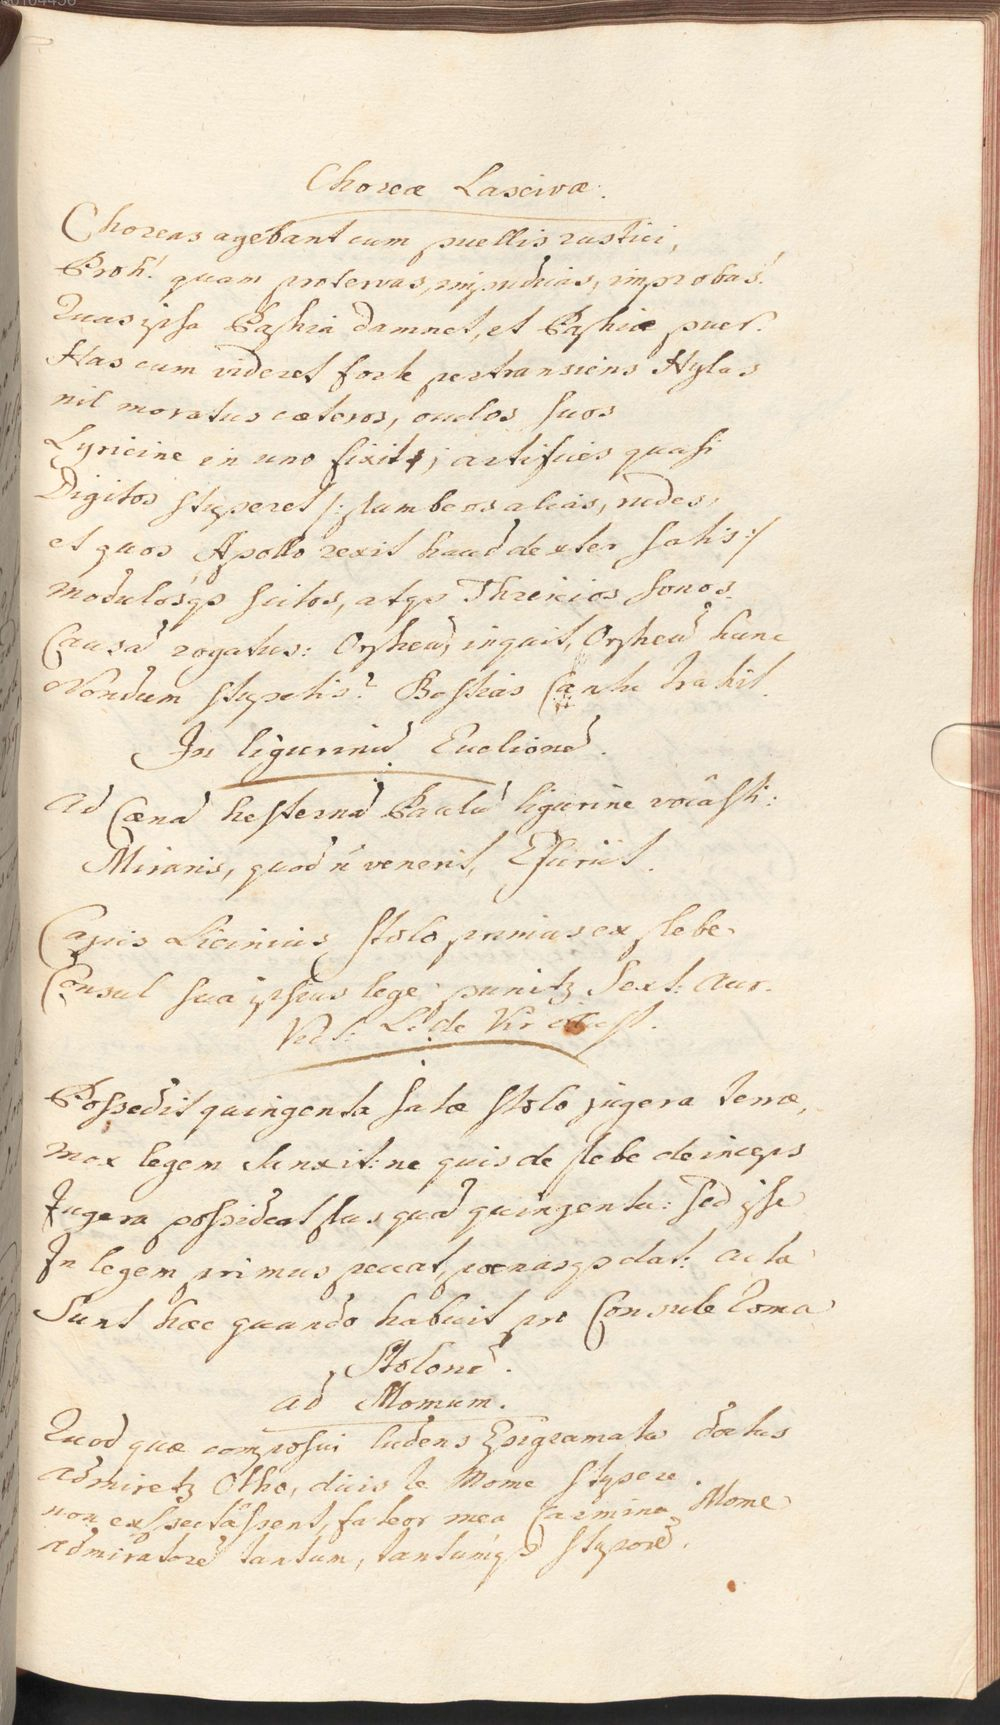 Choreæ Lascivæ.
Choreas agebant cum puellis rustici,
Proh! quam protervas, impudicas, improbas!
Quas ipsa Paphia damnet, et Paphiæ puer.
Has cum videret forte pertransiens Hylas
nil moratus cæteros, oculos suos
Lyricine in uno fixit; artifices quasi
Digitos stuperet /: plumbeos alias, rudes,
et quos Apollo rexit haud dexter satis :/
modulosqꝫ scitos, atqꝫ Threicios sonos.
Causã rogatus: Orpheũ, inquit, Orpheũ hunc
Nondum stupetis? Bestias Cantu trahit.
In ligurinũ Euclionẽ.
ad Cænã hesternã Paulũ ligurine vocâsti:
Miraris, quod ñ venerit, Esuriit.
Cajus Licinius Stolo primus ex plebe
Consul sua ipsius lege punitꝫ Sext: Aur.
Vict: L. de Vir illust.
Possedit quingenta satæ Stolo jugera terræ,
mox legem sanxit: ne quis de plebe deinceps
Jugera possideat plus quã quingenta: sed ipse
In legem primus peccat, pœnasqꝫ dat: acta
Sunt hæc quando habuit pro Consule Roma
Stolonẽ.
ad Momum.
Quod quæ composui ludens Epigramata doctus
admiretꝫ Otho, dicis te Mome stupere.
non exspectâssent, fateor mea Carmina Mome
admiratorẽ tantum, tantumqꝫ stuporẽ.